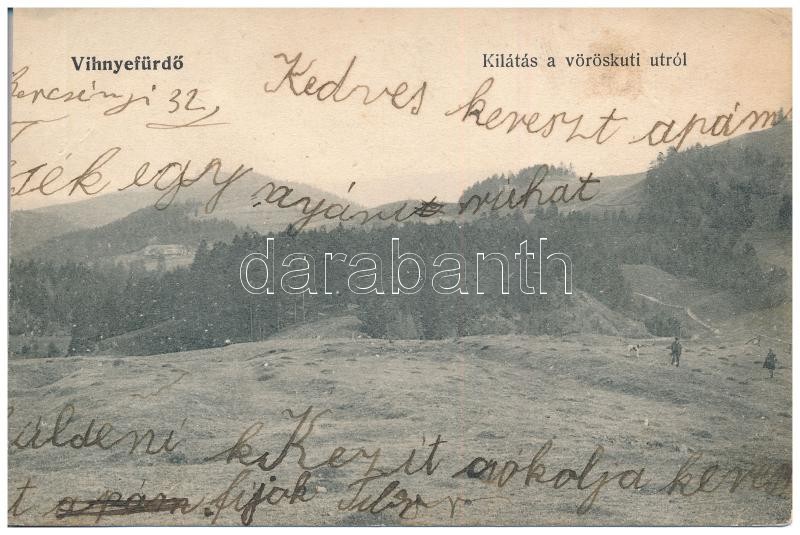 Vihnyefürdő
Kilátás a vöröskuti utról
Bercsényi 32,
Kedves kereszt apám
sék egy nyári ruhat
darabanth
küldeni k Kezít csókolja keres
t apám fijok